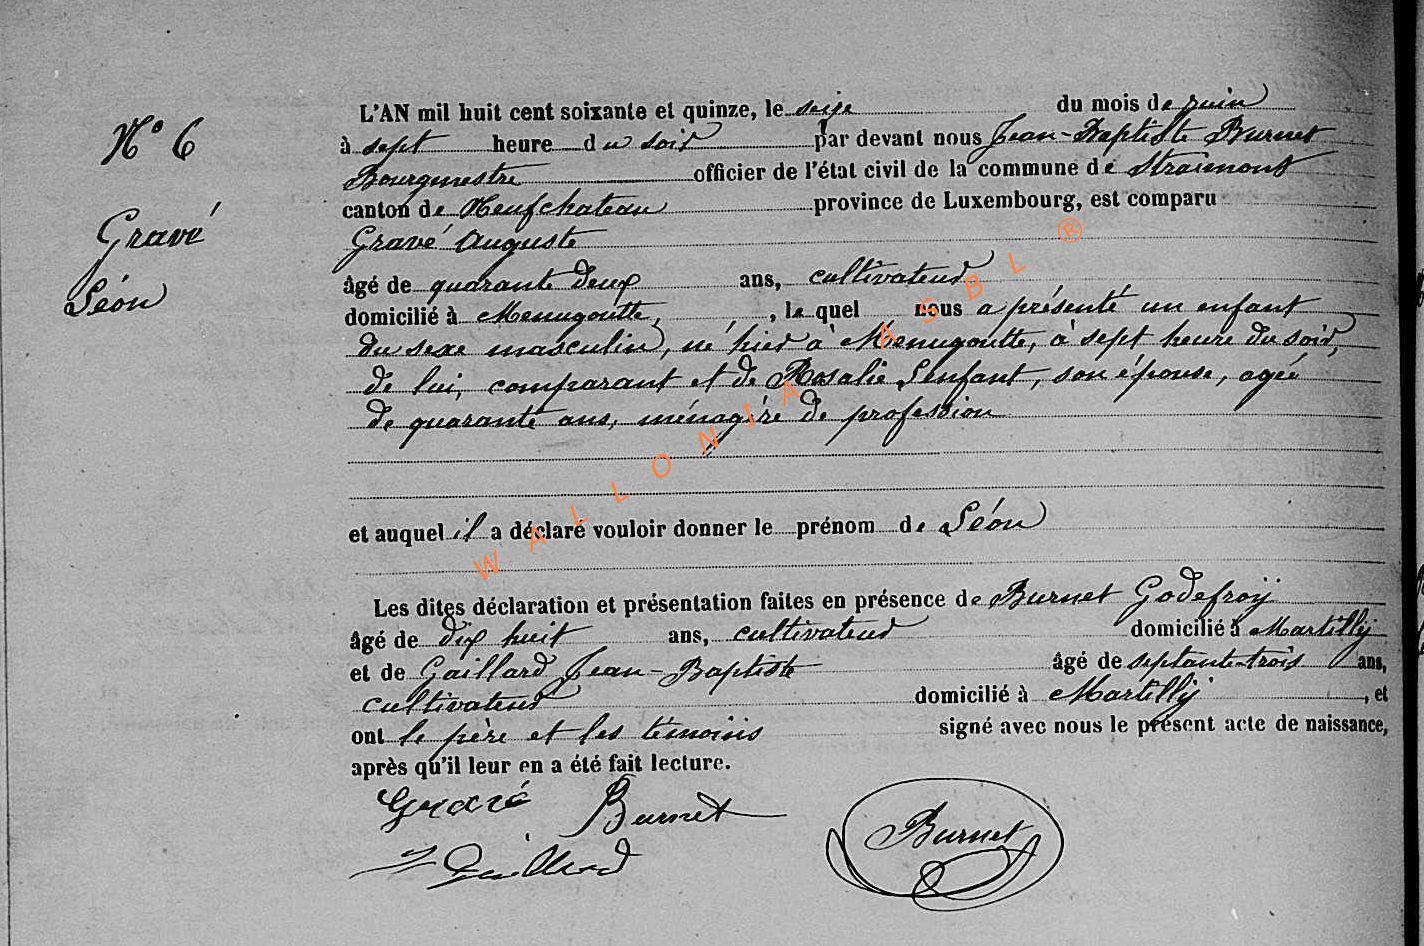 N° 6
Gravé
Léon
L'AN mil huit cent soixante et quinze, le seize du mois de juin
à sept heure du soir par devant nous Jean-Baptiste Burnet
Bourgmestre officier de l'état civil de la commune de Straimont
canton de Neufchateau province de Luxembourg, est comparu
Gravé Auguste
âgé de quarante deux ans, cultivateur
domicilié à Menugoutte, , le quel nous a présenté un enfant
du sexe masculin, né hier à Ménugoutte, à sept heure du soir,
de lui, comparant et de Rosalie Lenfant, son épouse, agée
de quarante ans, ménagère de profession
et auquel il a déclaré vouloir donner le prénom de Léon
Les dites déclaration et présentation faites en présence de Burnet Godefroij
âgé de dix huit ans, cultivateur domicilié à Martilly
et de Gaillard Jean-Baptiste âgé de septante-trois ans,
cultivateur domicilié à Martilly , et
ont le père et les témoins signé avec nous le présent acte de naissance,
après qu'il leur en a été fait lecture.
Gravé Burnet Burnet
J Gaillard
WALLONIA ASBL ®